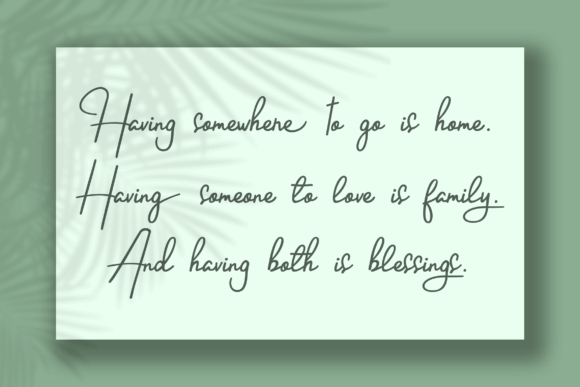 Having somewhere to go is home.
Having someone to love is family.
And having both is blessings.